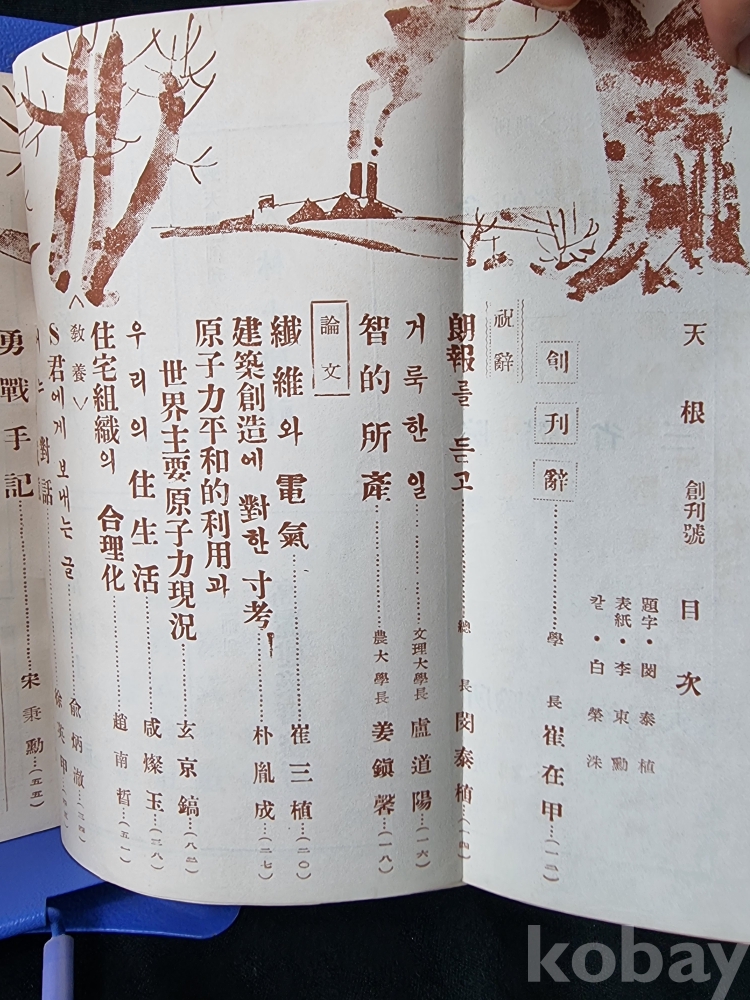 天根 創刊號 目次
題字・閔泰植
表紙・李東勳
칼・白榮洙
創刊辭……學長 崔在甲…(一二)
祝辭
朗報를 듣고……總長 閔泰植…(一四)
거룩한 일……文理大學長 盧道陽…(一六)
智的所產……農大學長 姜鎭馨…(一八)
論文
纖維와 電氣……崔三植…(二〇)
建築創造에 對한 寸考……朴胤成…(二七)
原子力平和的利用과
世界主要原子力現況……玄京鎬…(八二)
우리의 住生活……咸燦玉…(三八)
住宅組織의 合理化……趙南晳…(五一)
<敎養>
S君에게 보내는 글……兪炳澈…(三四)
對話……徐英甲
勇戰手記……宋秉勳…(五五)
kobay